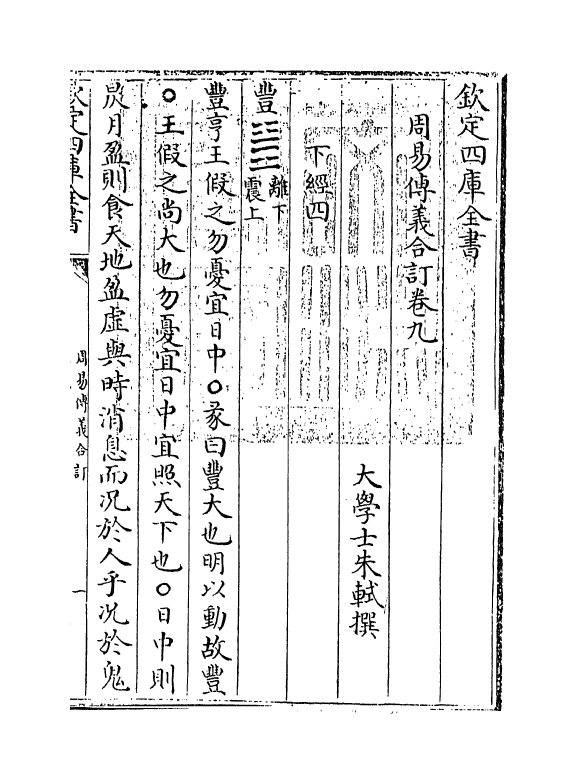 欽定四庫全書
周易傳義合訂卷九
大學士朱軾撰
下經四
豐䷶離下震上
豐亨王假之勿憂宜日中○彖曰豐大也明以動故豐
○王假之尚大也勿憂宜日中宜照天下也○日中則
昃月盈則食天地盈虛與時消息而況於人乎況於鬼
欽定四庫全書
周易傳義合訂
一